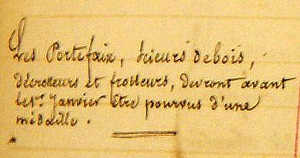 Les Portefaix, scieurs de bois,
décrotteurs et frotteurs, devront avant
le 1er Janvier être pourvus d'une
médaille.